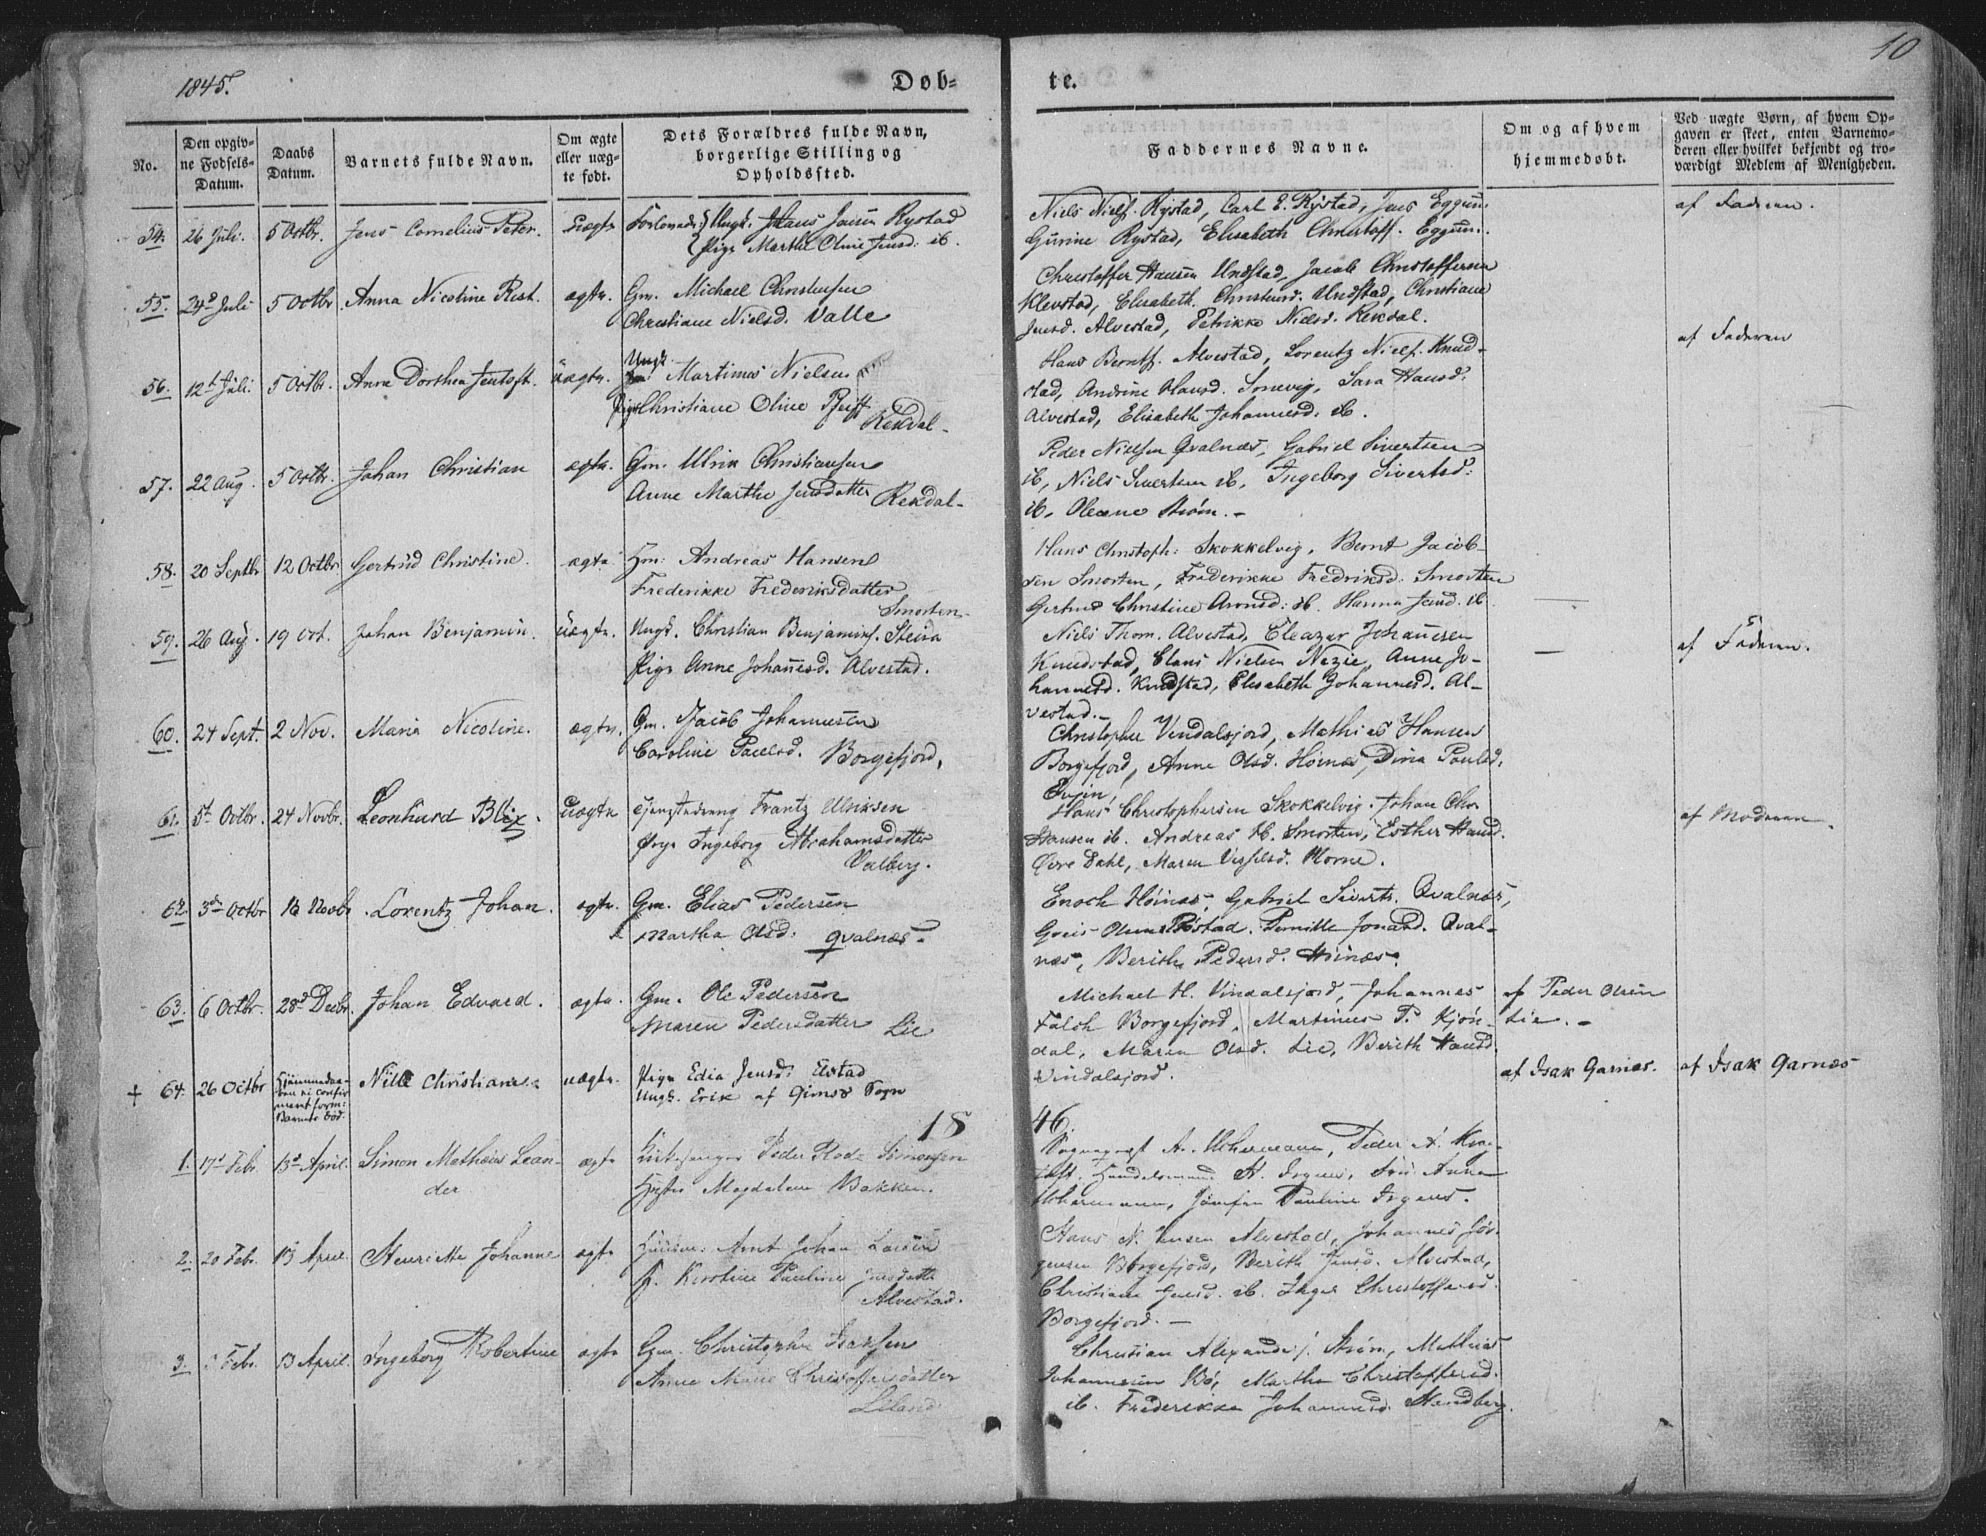 1845.
Døb-
te.
10
No.
Den opgiv-
ne Fødsels-
Datum.
Daabs
Datum.
Barnets fulde Navn.
Om ægte
eller uæg-
te født.
Dets Forældres fulde Navn,
borgerlige Stilling og
Opholdssted.
Faddernes Navne.
Om og af hvem
hjemmedøbt.
Ved uægte Børn, af hvem Op-
gaven er skeet, enten Barnemo-
deren eller hvilket bekjendt og tro-
værdigt Medlem af Menigheden.
54. 26 Juli. 5 Octbr. Jens Cornelius Peter. uægte Forlovede Ungk. Hans Jansen Rystad
Pige Marthe Oline Jensd: ib.
Niels Nielss. Rystad, Carl E. Rystad, Jens Eggum.
Gurine Rystad, Elisabeth Christoff. Eggum.
af Faderen.
55. 24d Juli 5 Octbr Anna Nicoline Rest. ægte. Gm. Michael Christensen
Christiane Nielsd. Valle
Christoffer Hansen Undstad, Jacob Christoffersen
Klevstad, Elisabeth Christensd. Undstad, Christiane
Jensd. Alvestad, Petrikke Nielsd. Rekdal.
af Faderen
56. 12t Juli. 5 Octbr. Anne Dorthea Jentoft. uægte. Ungk. Martinus Nielsen
Pige Christiane Oline Pfeiff
Rekdal.
Hans Berntss. Alvestad, Lorentz Nielss. Knud-
stad, Andrine Hansd. Sara Hansd:
Alvestad, Elisabeth Johannesd: ib.
57. 22 Aug. 5 Octbr. Johan Christian ægte. Gm. Ulrik Christiansen
Anne Marthe Jensdatter Rekdal.
Peder Nielsen Qvalnæs, Gabriel Sivertsen
ib, Niels Sivertsen ib, Ingeborg Sivertsd:
ib. Oleane Strøm.
58. 20 Septbr 12 Octbr Gertrud Christine. ægte Hm: Andreas Hansen
Frederikke Frederiksdatter
Smorten.
Hans Christoph: Skokkelvig, Bernt Jacob-
sen Smorten, Frederikke Fredriksd: Smorten
Gertrud Christine Aronsd: ib. Hanna Jensd. ib.
59. 26 Aug. 19 Oct. Johan Benjamin. uægte. Ungk. Christian Benjamins. Steira
Pige Anne Johannesd. Alvestad.
Niels Thom. Alvestad, Eleazar Johannesen
Knudstad, Claus Nielsen Anne Jo-
hannesd. Knudstad, Elisabeth Johannesd. Al-
vestad.
af Faderen.
60. 24 Sept. 2 Nov. Maria Nicoline. ægte. Gm. Jacob Johannesen
Caroline Paulsd. Borgefjord.
Christopher Vindalsjord, Mathias Hansen
Borgefjord, Anne Olsd. Høinæs, Dina Paulsd.
61. 5t Octbr. 24 Novbr. Leonhard Blix. uægte Tjenestedreng Frantz Ulriksen
Pige Ingeborg Abrahamsdatter
Valberg.
Hans Christophersen Skokkelvig, Johan Chr.
Hansen ib. Andreas H. Smorten, Esther Hansd.
Øvre Dahl, Maren Horne.
af Moderen.
62. 3d Octbr 16 Novbr. Lorentz Johan. ægte. Gm. Elias Pedersen
Martha Olsd: Qvalnæs.
Enoch Høinæs, Gabriel Siverts. Qvalnæs,
Pernille Jonasd. Qval-
næs, Berithe Pedersd. Høinæs.
63. 6 Octbr. 28d Decbr. Johan Edvard. ægte. Gm. Ole Pedersen
Maren Pedersdatter Lie
Michael H. Vindalsjord, Johannes
Falch Borgefjord, Martinus P. Kjøn-
dal, Maren Olsd. Lie, Berith Hansd.
Vindalsjord.
af Peder Olsen
Lie.
+ 64. 26 Octbr Hjemmedaa-
ben ei confir-
meret form:
Barnets Død. Nille Christiane uægte. Pige Edia Jensd: Elstad
Ungk. Erik af Gimsø Sogn
af Isak Garnæs.
af Isak Garnæs
18
46.
1. 17d Febr. 13d April. Simon Mathias Lean-
der ægte Kirkesanger Peder Rode Simonsen
Hustru Magdalena Bakken.
Sogneprest A. Uchermann, Peder A.
Handelsmand H. Irgens, Fru Anna
Uchermann, Jomfru Pauline Irgens.
2. 20 Febr. 13 April Henriette Johanne ægte Huusm: Arnt Johan Larsen
H. Kirstine Pauline Jensdatter
Alvestad.
Hans N. Jensen Alvestad, Johannes Jør-
gensen Borgefjord, Berith Jensd. Alvestad,
Christiane Jensd. ib. Inger Christoffersd.
Borgefjord.
3. Febr. 13 April. Ingeborg Robertine ægte Gm. Christopher Isaksen
Anne Marie Christoffersdatter
Leland
Christian Alexanders. Strøm, Mathias
Johannesen Bø, Martha Christoffersd.
ib. Frederikke Johannesd. Standberg.